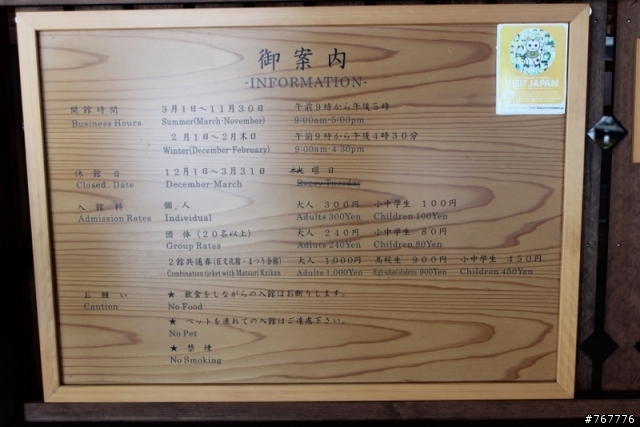 御案内
-INFORMATION-
VISIT JAPAN
開館時間 3月1日～11月30日 午前9時から午後5時
Business Hours Summer(March-November) 9:00am-5:00pm
2月1日～2月末日 午前9時から午後4時30分
Winter(December-February) 9:00am-4:30pm
休館日 12月1日～3月31日 曜日
Closed Date December-March Every Tuesday
入館料 個人 大人 300円 小中学生 100円
Admission Rates Individual Adults 300Yen Children 100Yen
団体(20名以上) 大人 240円 小中学生 80円
Group Rates Adults 240Yen Children 80Yen
2館共通券(匠文化館・まつり会館) 大人 1,000円 高校生 900円 小中学生 450円
Combination ticket with Matsuri Kaikan Adults 1,000Yen 900Yen Children 450Yen
お願い ★ 飲食をしながらの入館はお断りします。
Caution No Food
★ ペットを連れての入館はご遠慮下さい。
No Pet
★ 禁煙
No Smoking
#767776